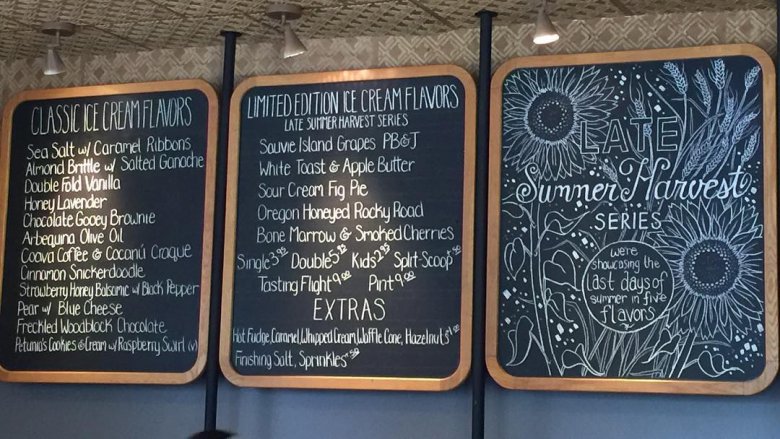 CLASSIC ICE CREAM FLAVORS
Sea Salt w/ Caramel Ribbons
Almond Brittle w/ Salted Ganache
Double Fold Vanilla
Honey Lavender
Chocolate Gooey Brownie
Arbequina Olive Oil
Coava Coffee & Cocanú Craque
Cinnamon Snickerdoodle
Strawberry Honey Balsamic w/ Black Pepper
Pear w/ Blue Cheese
Freckled Woodblock Chocolate
Petunia's Cookies & Cream w/ Raspberry Swirl (v)
LIMITED EDITION ICE CREAM FLAVORS
LATE SUMMER HARVEST SERIES
Sauvie Island Grapes PB&J
White Toast & Apple Butter
Sour Cream Fig Pie
Oregon Honeyed Rocky Road
Bone Marrow & Smoked Cherries
Single Double Kids Split-Scoop .50
Tasting Flight 9.00 Pint 9.00
EXTRAS
Hot Fudge, Caramel, Whipped Cream, Waffle Cone, Hazelnuts $1.00
Finishing Salt, Sprinkles .50
LATE
Summer Harvest
SERIES
we're
showcasing the
last days of
summer in five
flavors.